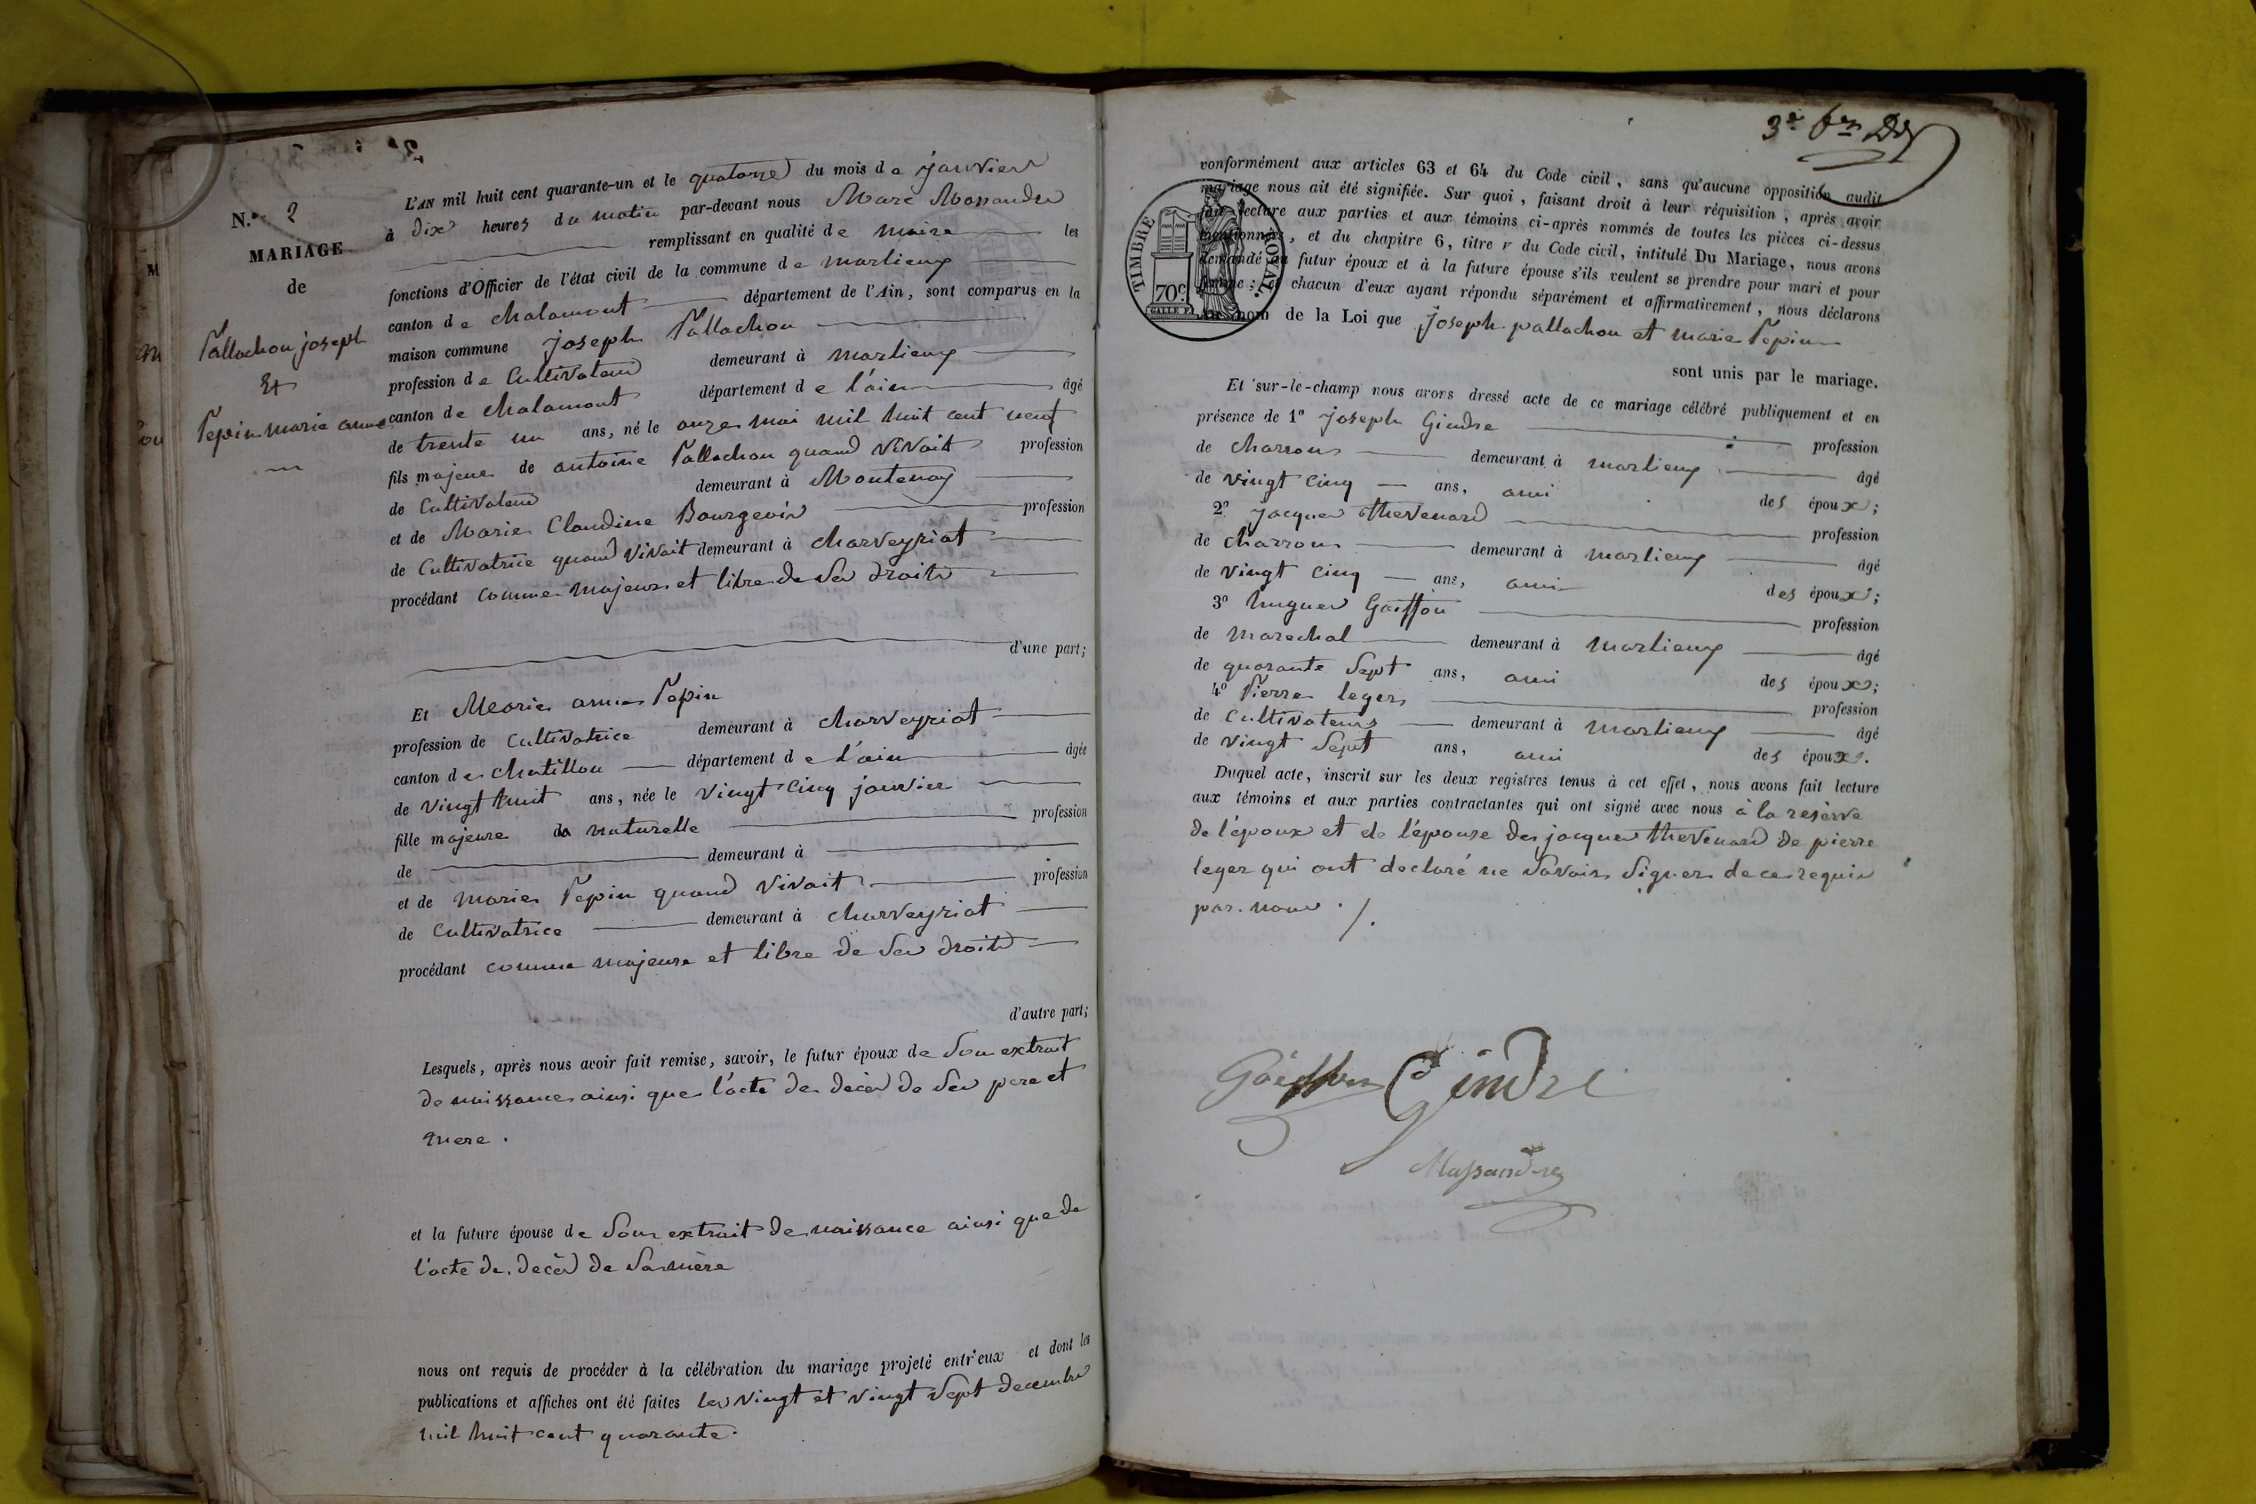 N.° 2
MARIAGE
de
Pallachon joseph
Et
Pepin marie anne
L'AN mil huit cent quarante-un et le quatorze du mois de janvier
à dix heures du matin par-devant nous Marc Massandre
remplissant en qualité de maire les
fonctions d'Officier de l'état civil de la commune de marlieux
canton de chalamont département de l'Ain, sont comparus en la
maison commune joseph Pallachon
profession de Cultivateur demeurant à marlieux
canton de chalamont département de l'ain âgé
de trente un ans, né le onze mai mil huit cent neuf
fils majeur de antoine Pallachon quand vivait profession
de Cultivateur demeurant à Montenay
et de Marie Claudine Bourgeois profession
de Cultivatrice quand vivait demeurant à charveyriat
procédant comme majeur et libre de ses droits
d'une part;
Et Marie anne Pepin
profession de cultivatrice demeurant à charveyriat
canton de chatillon département de l'ain âgée
de vingt huit ans, née le vingt cinq janvier
fille majeure de naturelle profession
de demeurant à
et de marie Pepin quand vivait profession
de Cultivatrice demeurant à charveyriat
procédant comme majeure et libre de ses droits
d'autre part;
Lesquels, après nous avoir fait remise, savoir, le futur époux de son extrait
de naissance ainsi que l'acte de décès de ses pere et
mere.
et la future épouse de son extrait de naissance ainsi que de
l'acte de décès de sa mère
nous ont requis de procéder à la célébration du mariage projeté entr'eux et dont les
publications et affiches ont été faites les vingt et vingt sept decembre
mil huit cent quarante.
3e
conformément aux articles 63 et 64 du Code civil, sans qu'aucune opposition audit
mariage nous ait été signifiée. Sur quoi, faisant droit à leur réquisition, après avoir
fait lecture aux parties et aux témoins ci-après nommés de toutes les pièces ci-dessus
mentionnées, et du chapitre 6, titre v du Code civil, intitulé Du Mariage, nous avons
demandé au futur époux et à la future épouse s'ils veulent se prendre pour mari et pour
femme; et chacun d'eux ayant répondu séparément et affirmativement, nous déclarons
au nom de la Loi que joseph pallachon et marie Pepin
TIMBRE ROYAL.
70c
sont unis par le mariage.
Et sur-le-champ nous avons dressé acte de ce mariage célébré publiquement et en
présence de 1° joseph Gindre profession
de charron demeurant à marlieux âgé
de vingt cinq ans, ami des époux;
2° jacques thevenard profession
de charron demeurant à marlieux âgé
de vingt cinq ans, ami des époux;
3° hugues Goiffon profession
de marechal demeurant à marlieux âgé
de quarante sept ans, ami des époux;
4° Pierre leger profession
de cultivateur demeurant à marlieux âgé
de vingt sept ans, ami des époux.
Duquel acte, inscrit sur les deux registres tenus à cet effet, nous avons fait lecture
aux témoins et aux parties contractantes qui ont signé avec nous à la reserve
de l'époux et de l'épouse de jacques thevenard de pierre
leger qui ont declaré ne savoir signer de ce requis
par nous ./.
Goiffon Gindre
Massandre